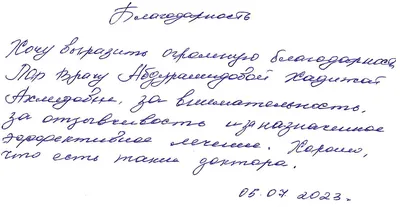 Благодарность
Хочу выразить огромную благодарность
Лор врачу Абдурашидовой Хадижат
Ахмедовне, за внимательность,
за отзывчивость и за назначенное
эффективное лечение. Хорошо,
что есть такие доктора.
05.07.2023.